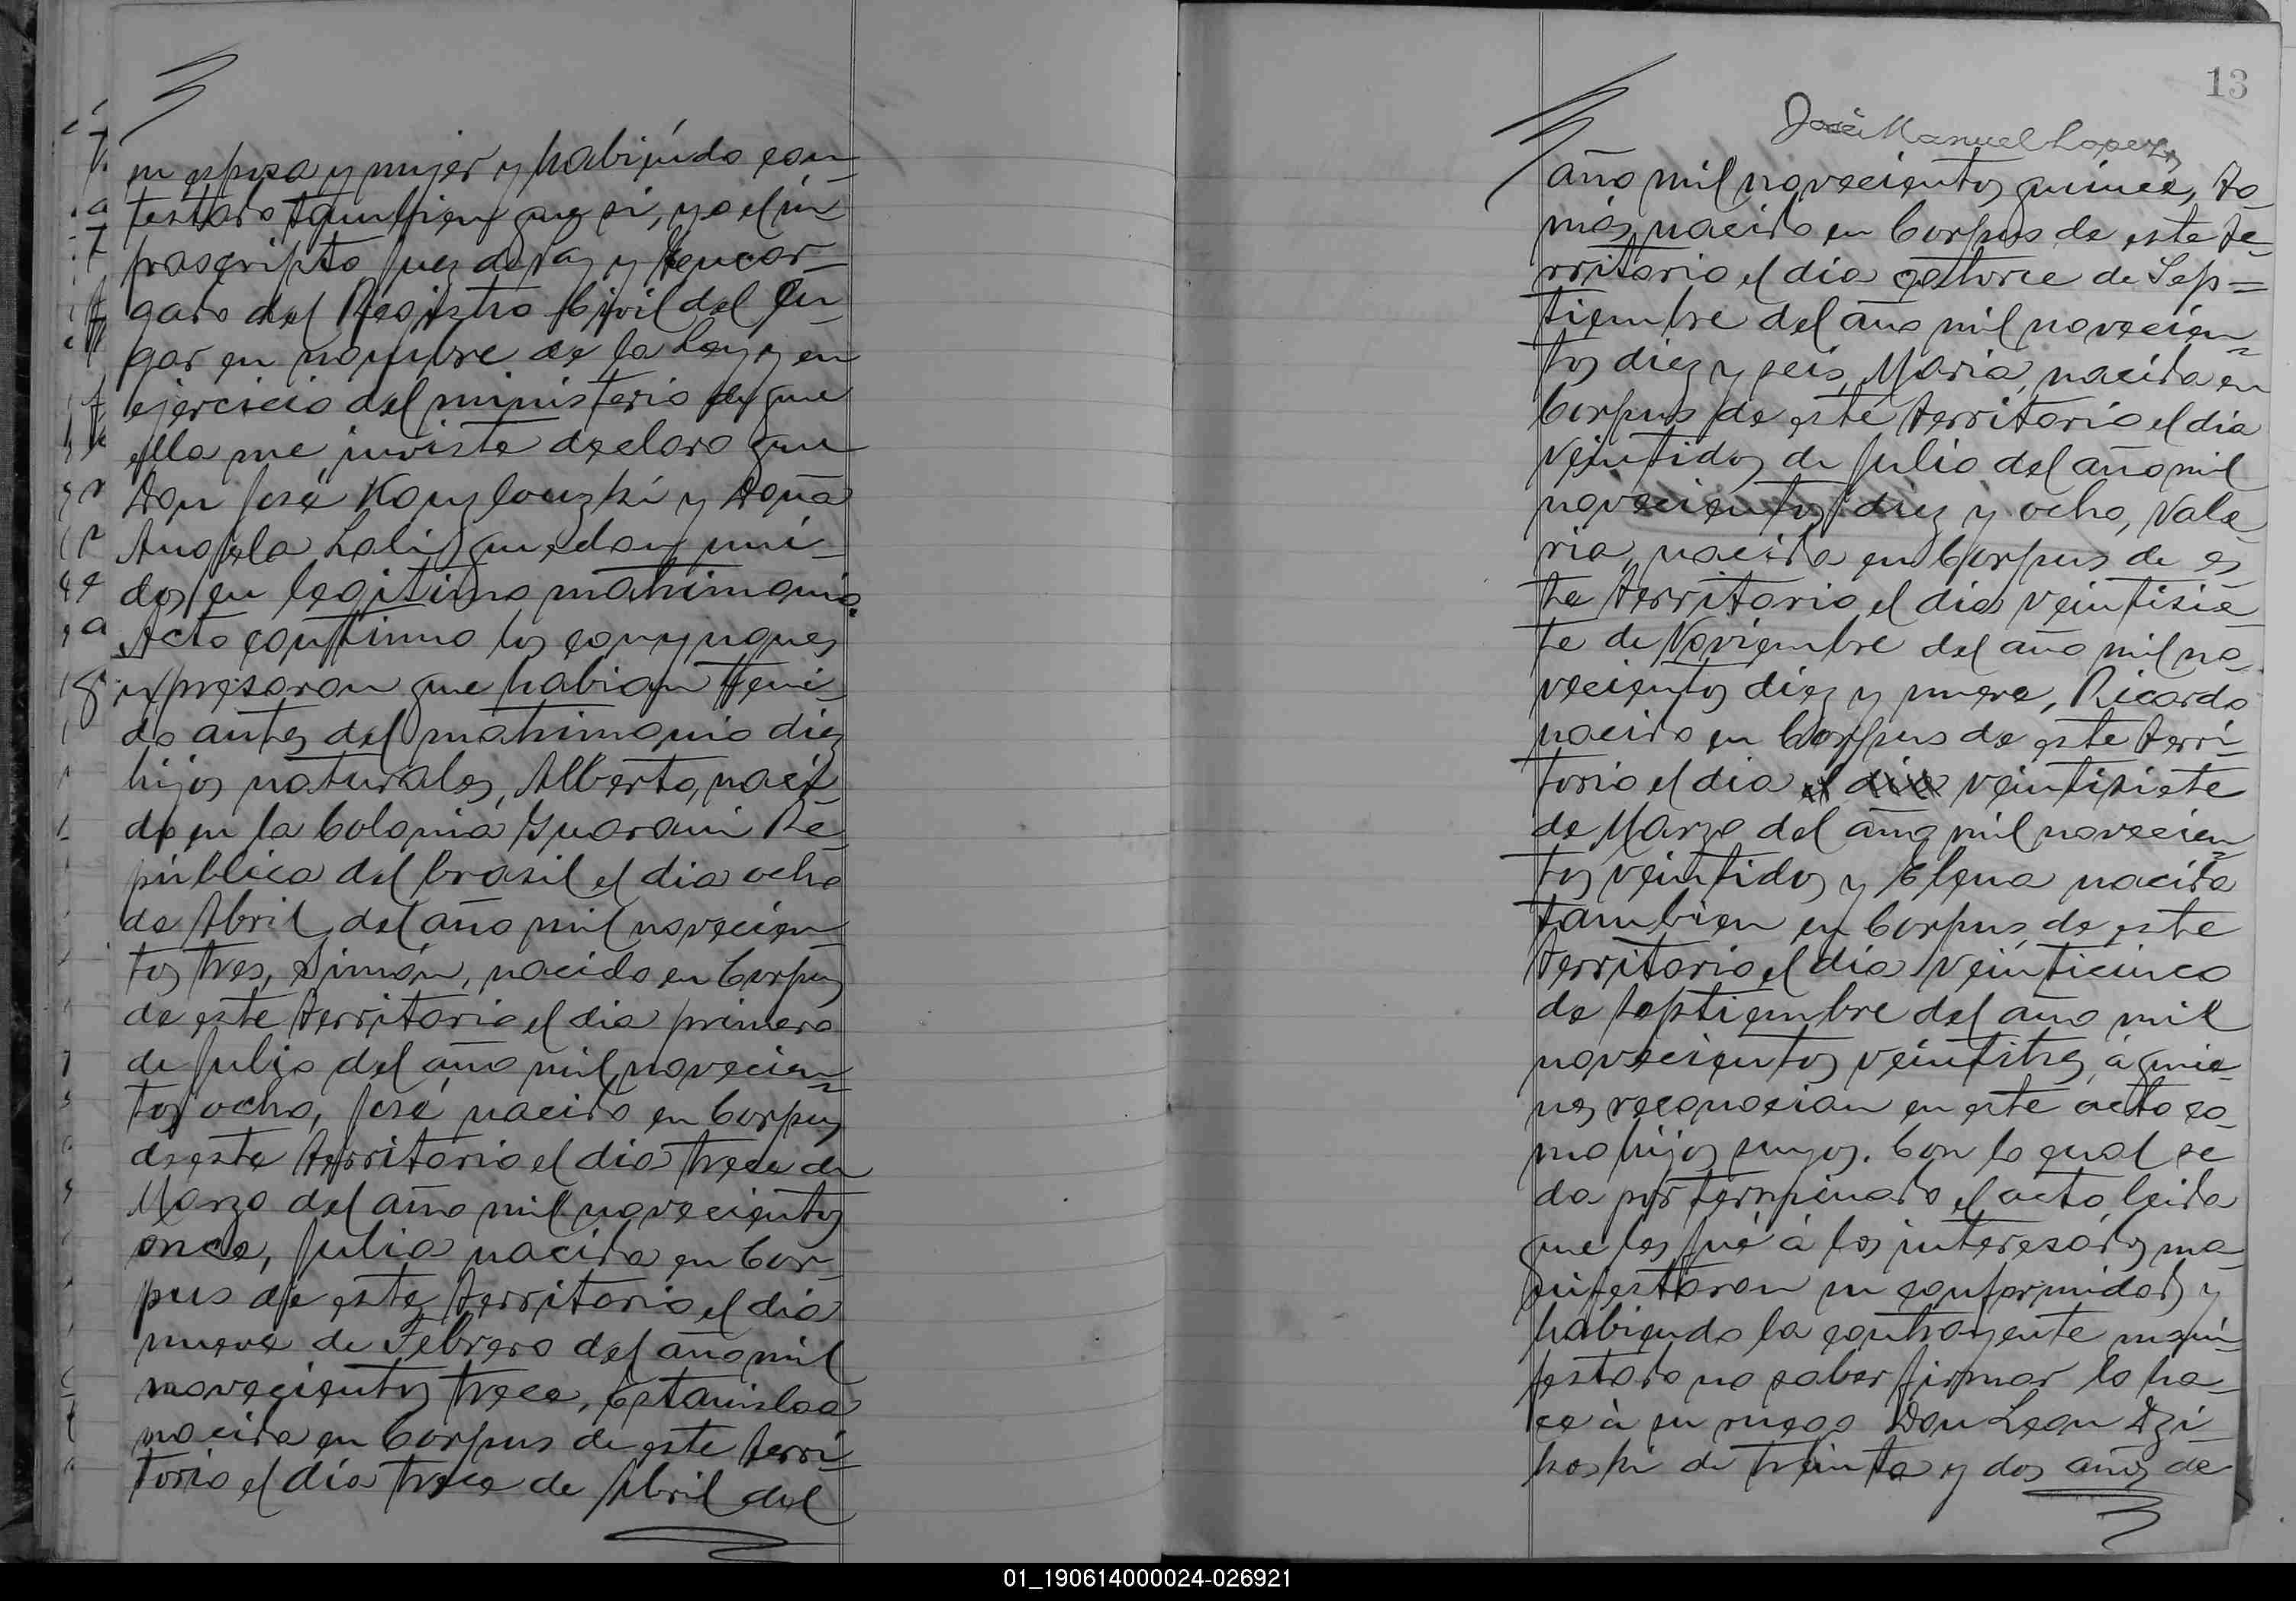 su esposa y mujer y habiéndo con-
testado tambien que si, yo el in-
frascripto Juez de Paz y Encar-
gado del Registro Civil del Lu-
gar en nombre de la Ley y en
ejercicio del ministerio de que
ella me inviste declaro que
Don José Kouzlouzki y Doña
Angela Lalis quedan uni-
dos en legitimo matrimonio.
Acto continuo los conyugues
expresaron que habian teni-
do antes del matrimonio diez
hijos naturales, Alberto, naci-
do en la Colonia Guarani Re-
pública del brasil el dia ocho
de Abril del año mil novecien-
tos tres, Simón, nacido en Corpus
de este territorio el dia primero
de Julio del año mil novecien-
tos ocho, José nacido en Corpus
de este territorio el dia trece de
Marzo del año mil novecientos
once, Julia nacida en Cor-
pus de este territorio el dia
nueve de Febrero del año mil
novecientos trece, Estanislaa
nacida en Corpus de este terri-
torio el dia trece de Abril del
13
José Manuel Lopez
año mil novecientos quince, To-
más, nacido en Corpus de este te-
rritorio el dia catorce de Sep-
tiembre del año mil novecien-
tos diez y seis, Maria, nacida en
Corpus de este territorio el dia
veintidos de Julio del año mil
novecientos diez y ocho, Vale-
ria, nacida en Corpus de es-
te territorio el dia veintisie-
te de Noviembre del año mil no-
vecientos diez y nueve, Ricardo
nacido en Corpus de este terri-
torio el dia el dia veintisiete
de Marzo del año mil novecien-
tos veintidos y Elena nacida
tambien en Corpus de este
territorio el dia veinticinco
de septiembre del año mil
novecientos veintitres, à quie-
nes reconocian en este acto co-
mo hijos suyos. Con lo cual se
da por terminado el acto, leida
que les fué à los interesados ma-
nifestaron su conformidad y
habiendo la contrayente mani-
festado no saber firmar lo ha-
ce à su ruego Don Leon Dzi-
koski de treinta y dos años de
01_190614000024-026921